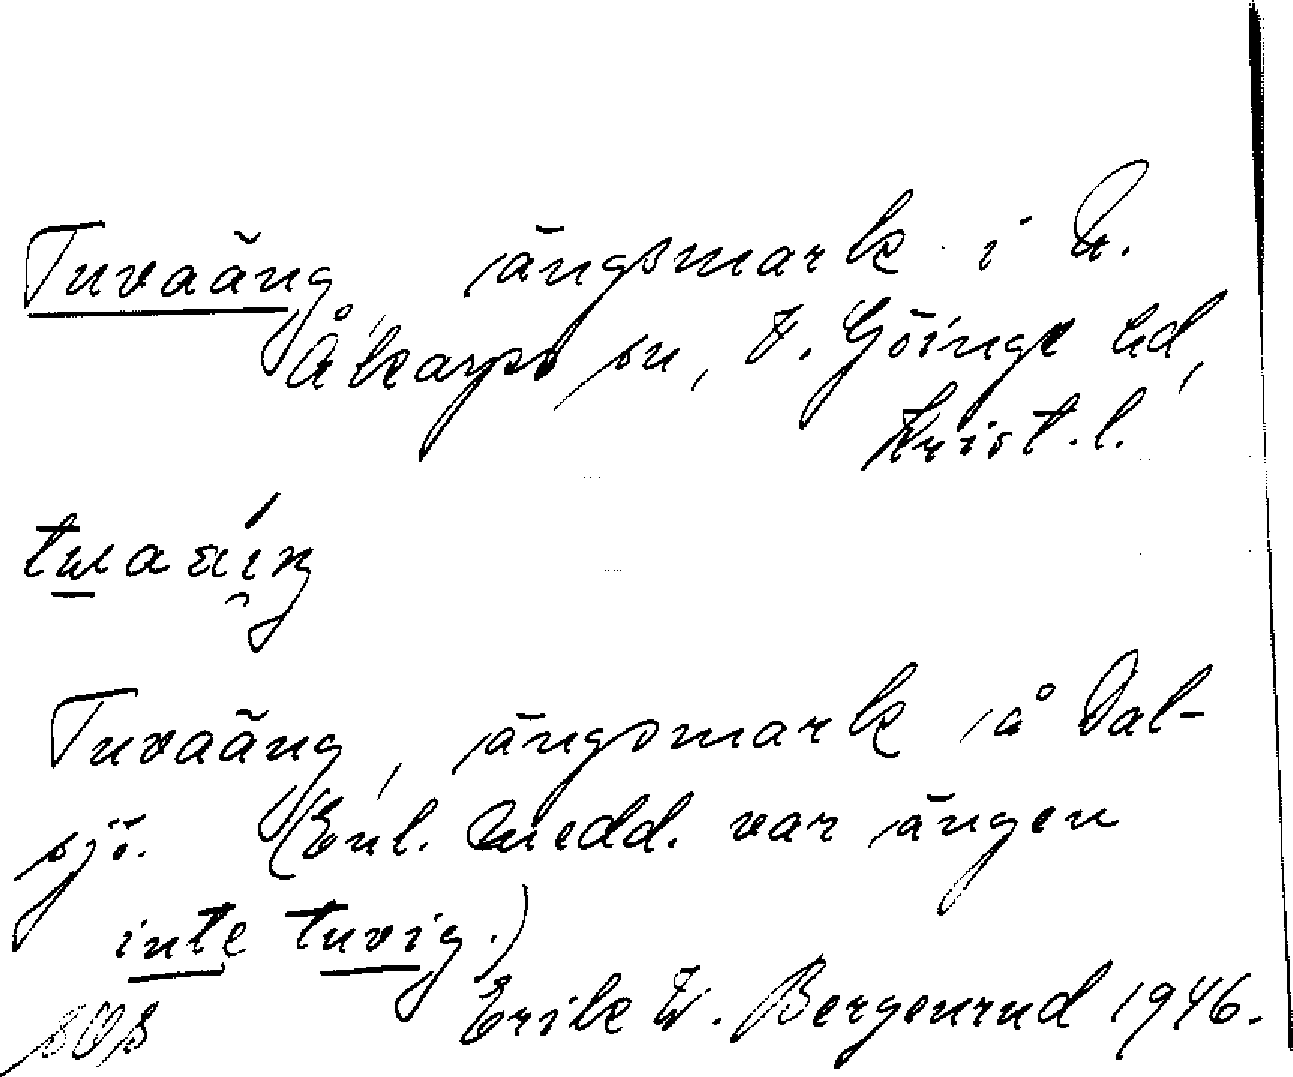 Tuvaäng, ängsmark i N.
Åkarps sn, V. Göinge hd,
Krist. l.
Tuvaäng, ängsmark å Dal-
sjö. (Enl. Medd. var ängen
inte tuvig.)
Erik W. Bergenrud 1946.